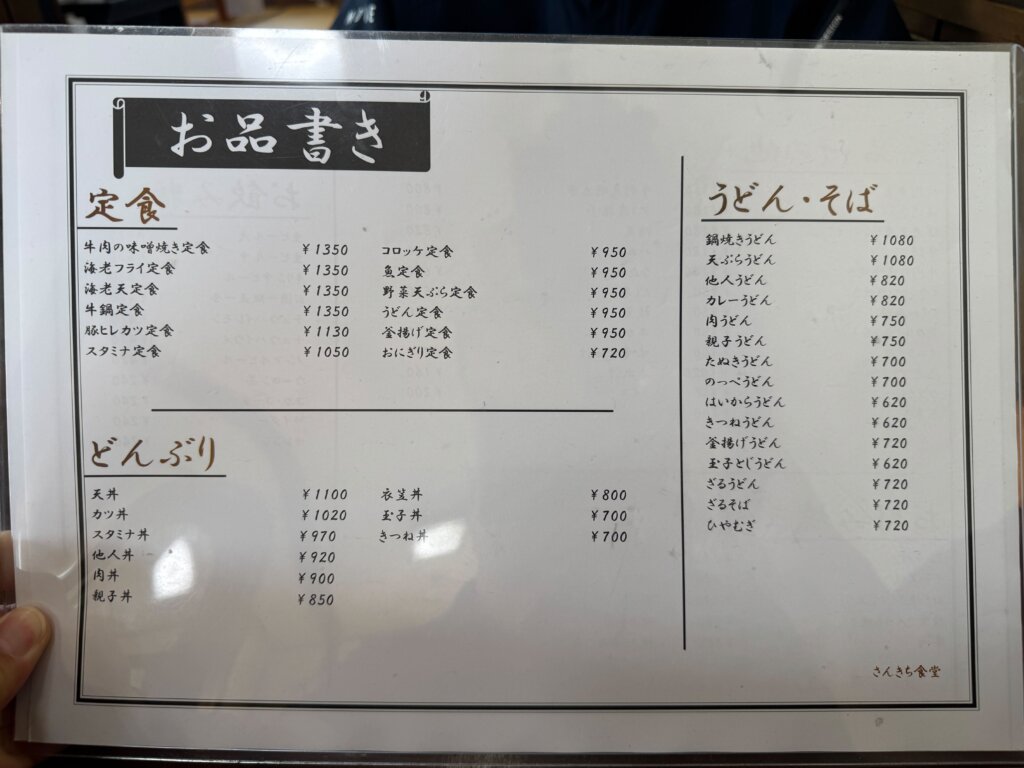 お品書き
定食
牛肉の味噌焼き定食 ￥1350
海老フライ定食 ￥1350
海老天定食 ￥1350
牛鍋定食 ￥1350
豚ヒレカツ定食 ￥1130
スタミナ定食 ￥1050
コロッケ定食 ￥950
魚定食 ￥950
野菜天ぷら定食 ￥950
うどん定食 ￥950
釜揚げ定食 ￥950
おにぎり定食 ￥720
どんぶり
天丼 ￥1100
カツ丼 ￥1020
スタミナ丼 ￥970
他人丼 ￥920
肉丼 ￥900
親子丼 ￥850
衣笠丼 ￥800
玉子丼 ￥700
きつね丼 ￥700
うどん・そば
鍋焼きうどん ￥1080
天ぷらうどん ￥1080
他人うどん ￥820
カレーうどん ￥820
肉うどん ￥750
親子うどん ￥750
たぬきうどん ￥700
のっぺうどん ￥700
はいからうどん ￥620
きつねうどん ￥620
釜揚げうどん ￥720
玉子とじうどん ￥620
ざるうどん ￥720
ざるそば ￥720
ひやむぎ ￥720
さんきち食堂